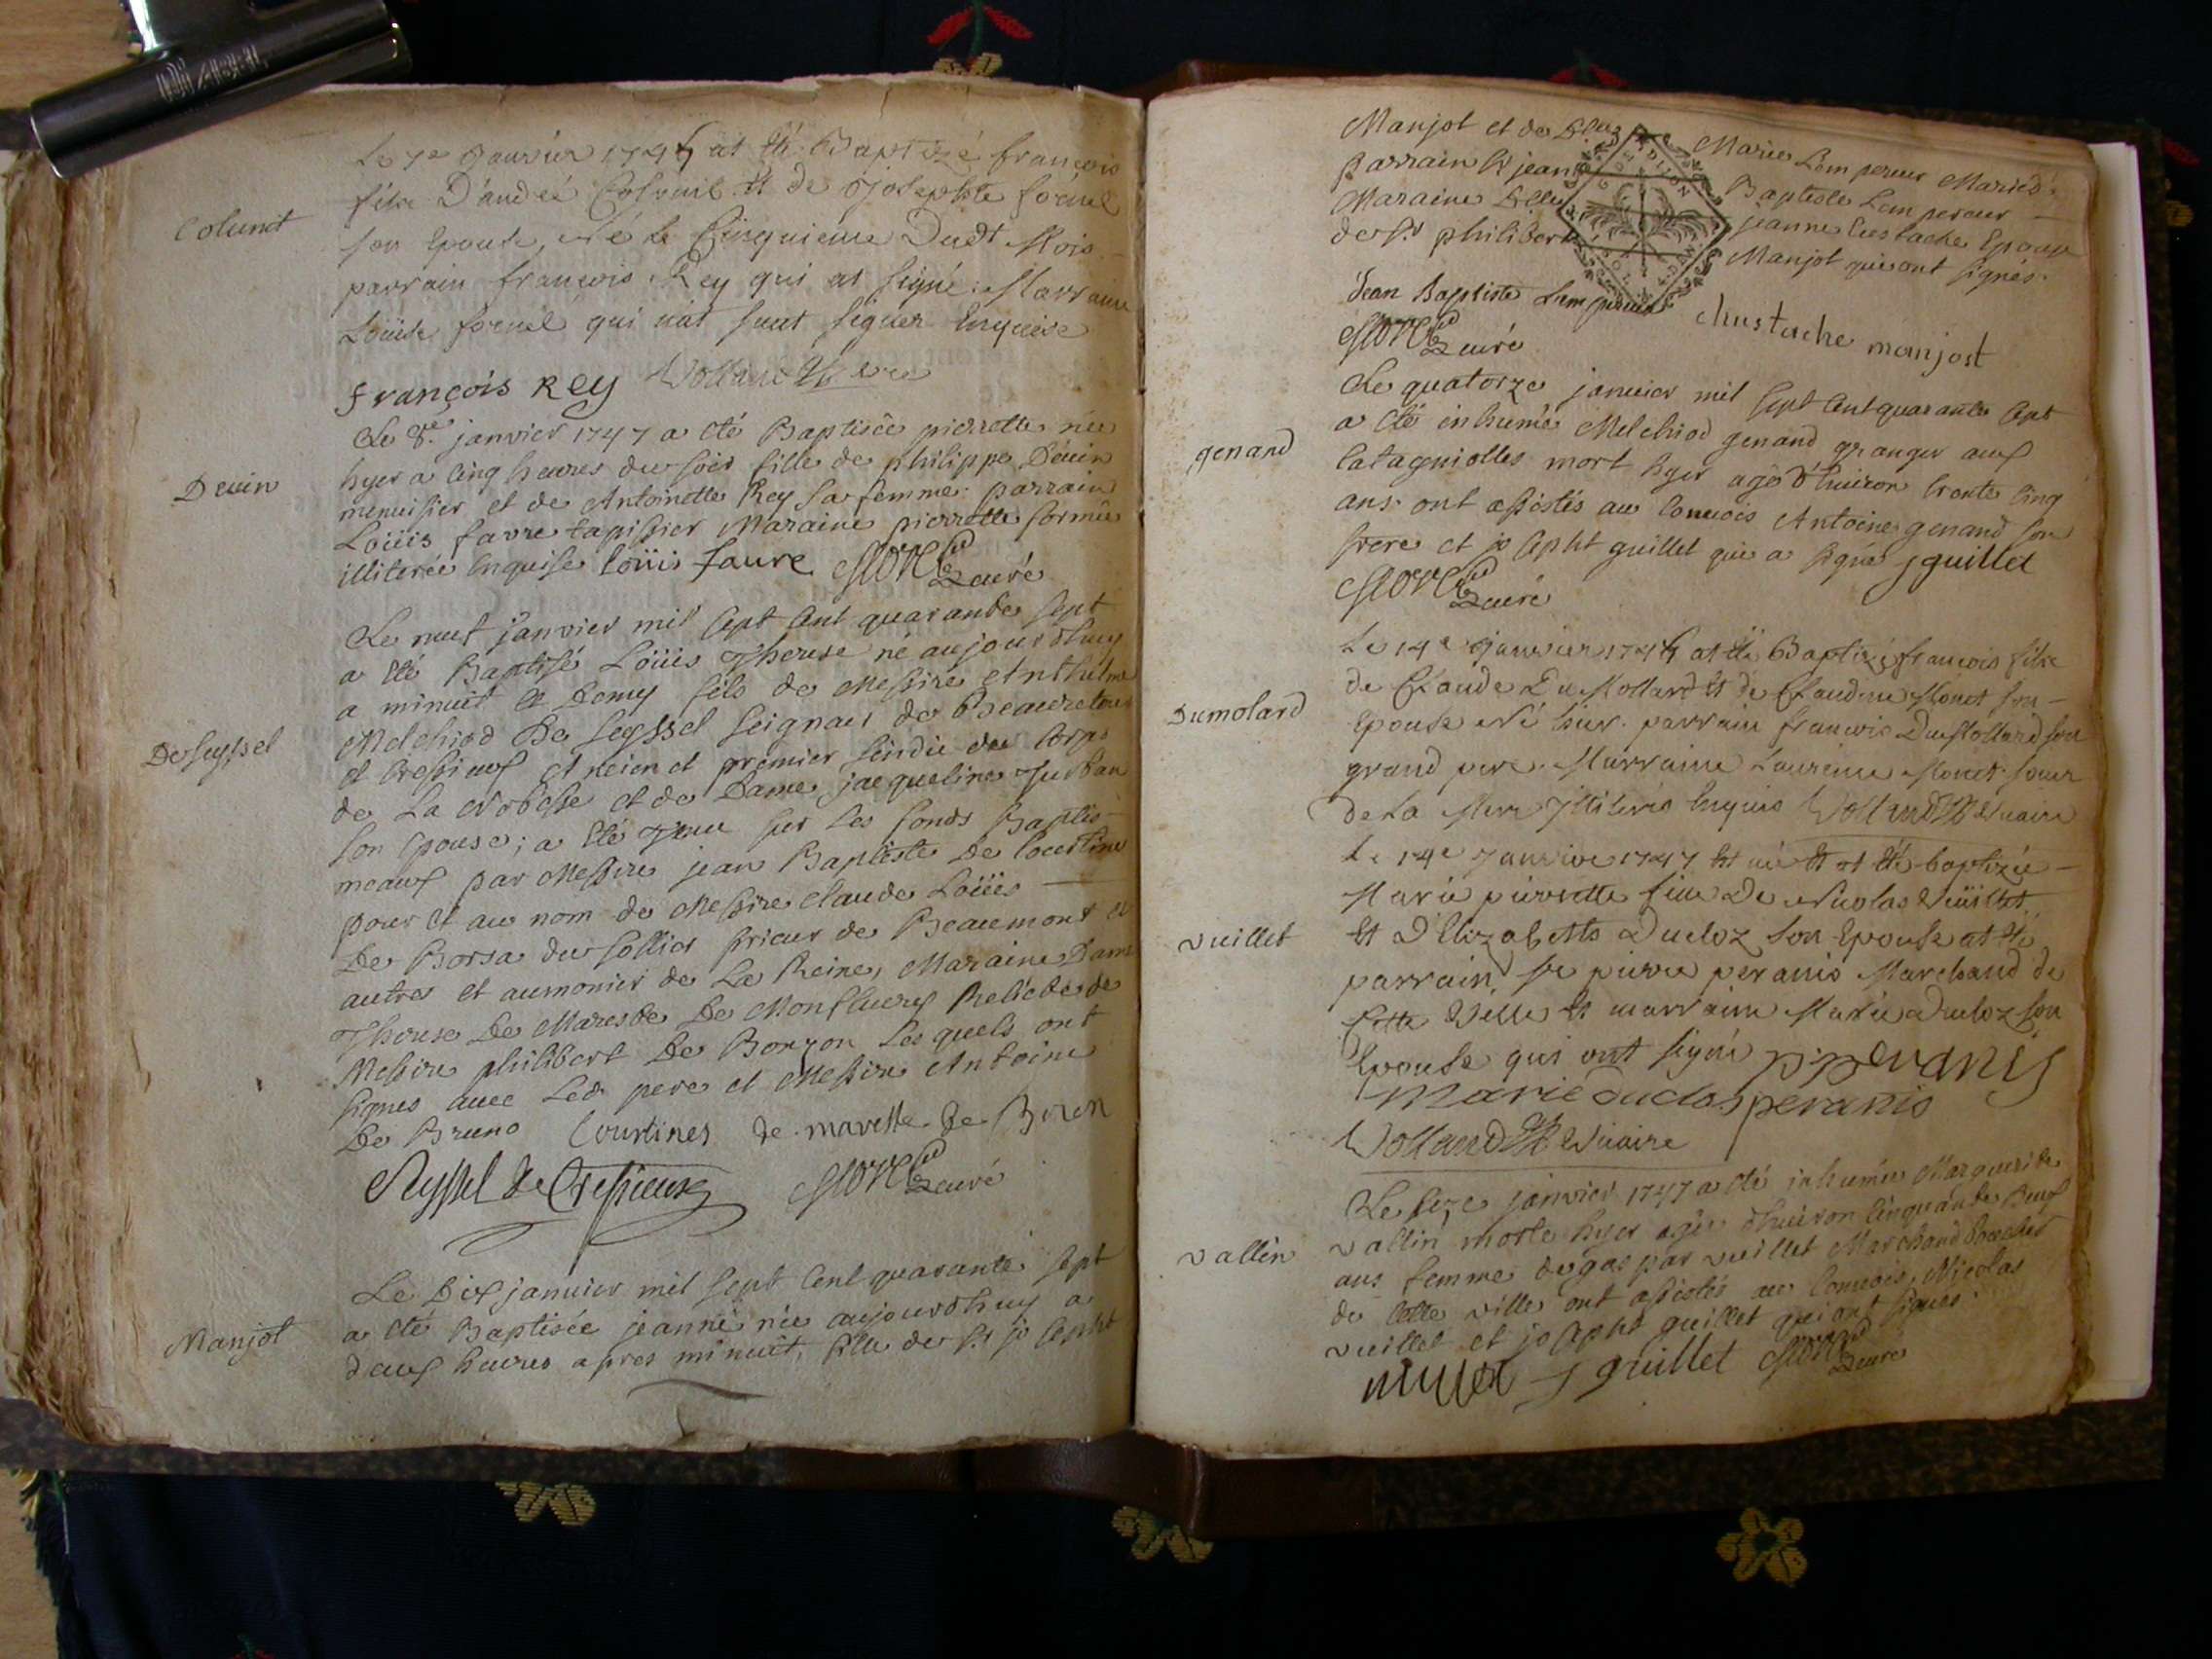 Le 7e Janvier 1747 at été Baptizé francois
Colunit
fils D'andréé Colunit Et de Josephte fornel
son Epouse, Né le Cinquieme Dudt Mois
parrain francois Rey qui at signé Marraine
Loüise fornel qui n'at sceut signer Enquise
François Rey Volland Vre
Le 8.e janvier 1747 a eté Baptisée pierrette née
Devin
hyer a cinq heures du soir fille de philippe Devin
menuisier et de Antoinette Rey sa femme. parrain
Loüis favre tapissier Maraine pierrette formie
illiterée enquise loüis faure curé
Le neuf janvier mil sept cent quarante sept
a eté Baptisé Loüis Therese né aujourdhuy
a minuit et Demy fils de Messire Anthelme
De Seyssel
Melchiod De Seyssel Seigneur de Beauretour
et Cressieux Ancien et premier sindic du Corps
de La Noblesse et de Dame jacqueline Jurban
son Epouse; a eté Tenu sur les fonds Baptis-
meaux par Messire jean Baptiste De Courtine
pour et au nom de Messire Claude Loüis
De Borsa du sollier prieur de Beaumont et
autres et aumonier de La Reine, Maraine Dame
Therese De Mareste De Montfleury Relicte de
Messire philibert De Bonzon Lesquels ont
signes avec Led. pere et Messire Antoine
De Bruno Courtines de mareste de
Seyssel de Cressieux curé
Le Dix janvier mil sept Cent quarante sept
Manjot
a eté Baptisée jeanne née aujourdhuy a
deux heures apres minuit, fille de sr. joseph
Manjot et de Marie Lempereur Mariés
parrain sr jean Baptiste Lempereur
Maraine jeanne Eustache Epouse
de sr. philibert Manjot qui ont signés.
Jean Baptiste Lempereur Eustache manjost
curé
Le quatorze janvier mil sept cent quarante sept
genand
a eté inhumé Melchiod genand granger aux
Catagniolles mort hyer agé d'huiron trente cinq
ans. ont assistés au Convois Antoine genand son
frere et joseph guillet qui a signé J guillet
curé
Le 14e Janvier 1747 at été Baptizé francois fils
Dumolard
de Claude Du Mollard Et de Claudine Monet son
Epouse Né hier. parrain francois DuMollard son
grand pere. Marraine Laurence Monet soeur
de La Mere Jlliterés Enquis Volland Vicaire
Le 14e Janvier 1747 Est née Et at été baptizée
Marie pierrette fille De Nicolas Vuillet
vuillet
Et D'Elizabeth Ducloz son Epouse at été
parrain sr pierre peranis Marchand de
Cette Ville Et marraine Marie Ducloz son
Epouse qui ont signé p. peranis
Marie duclos peranis
Volland Vicaire
Le seize janvier 1747 a eté inhumée Marguerite
vallin
vallin morte hyer agée dhuiron cinquante neuf
ans femme de gaspar vuillet Marchand Boucher
de Cette ville ont assistés au Convois, Nicolas
vuillet et joseph guillet qui ont signés.
J guillet curé